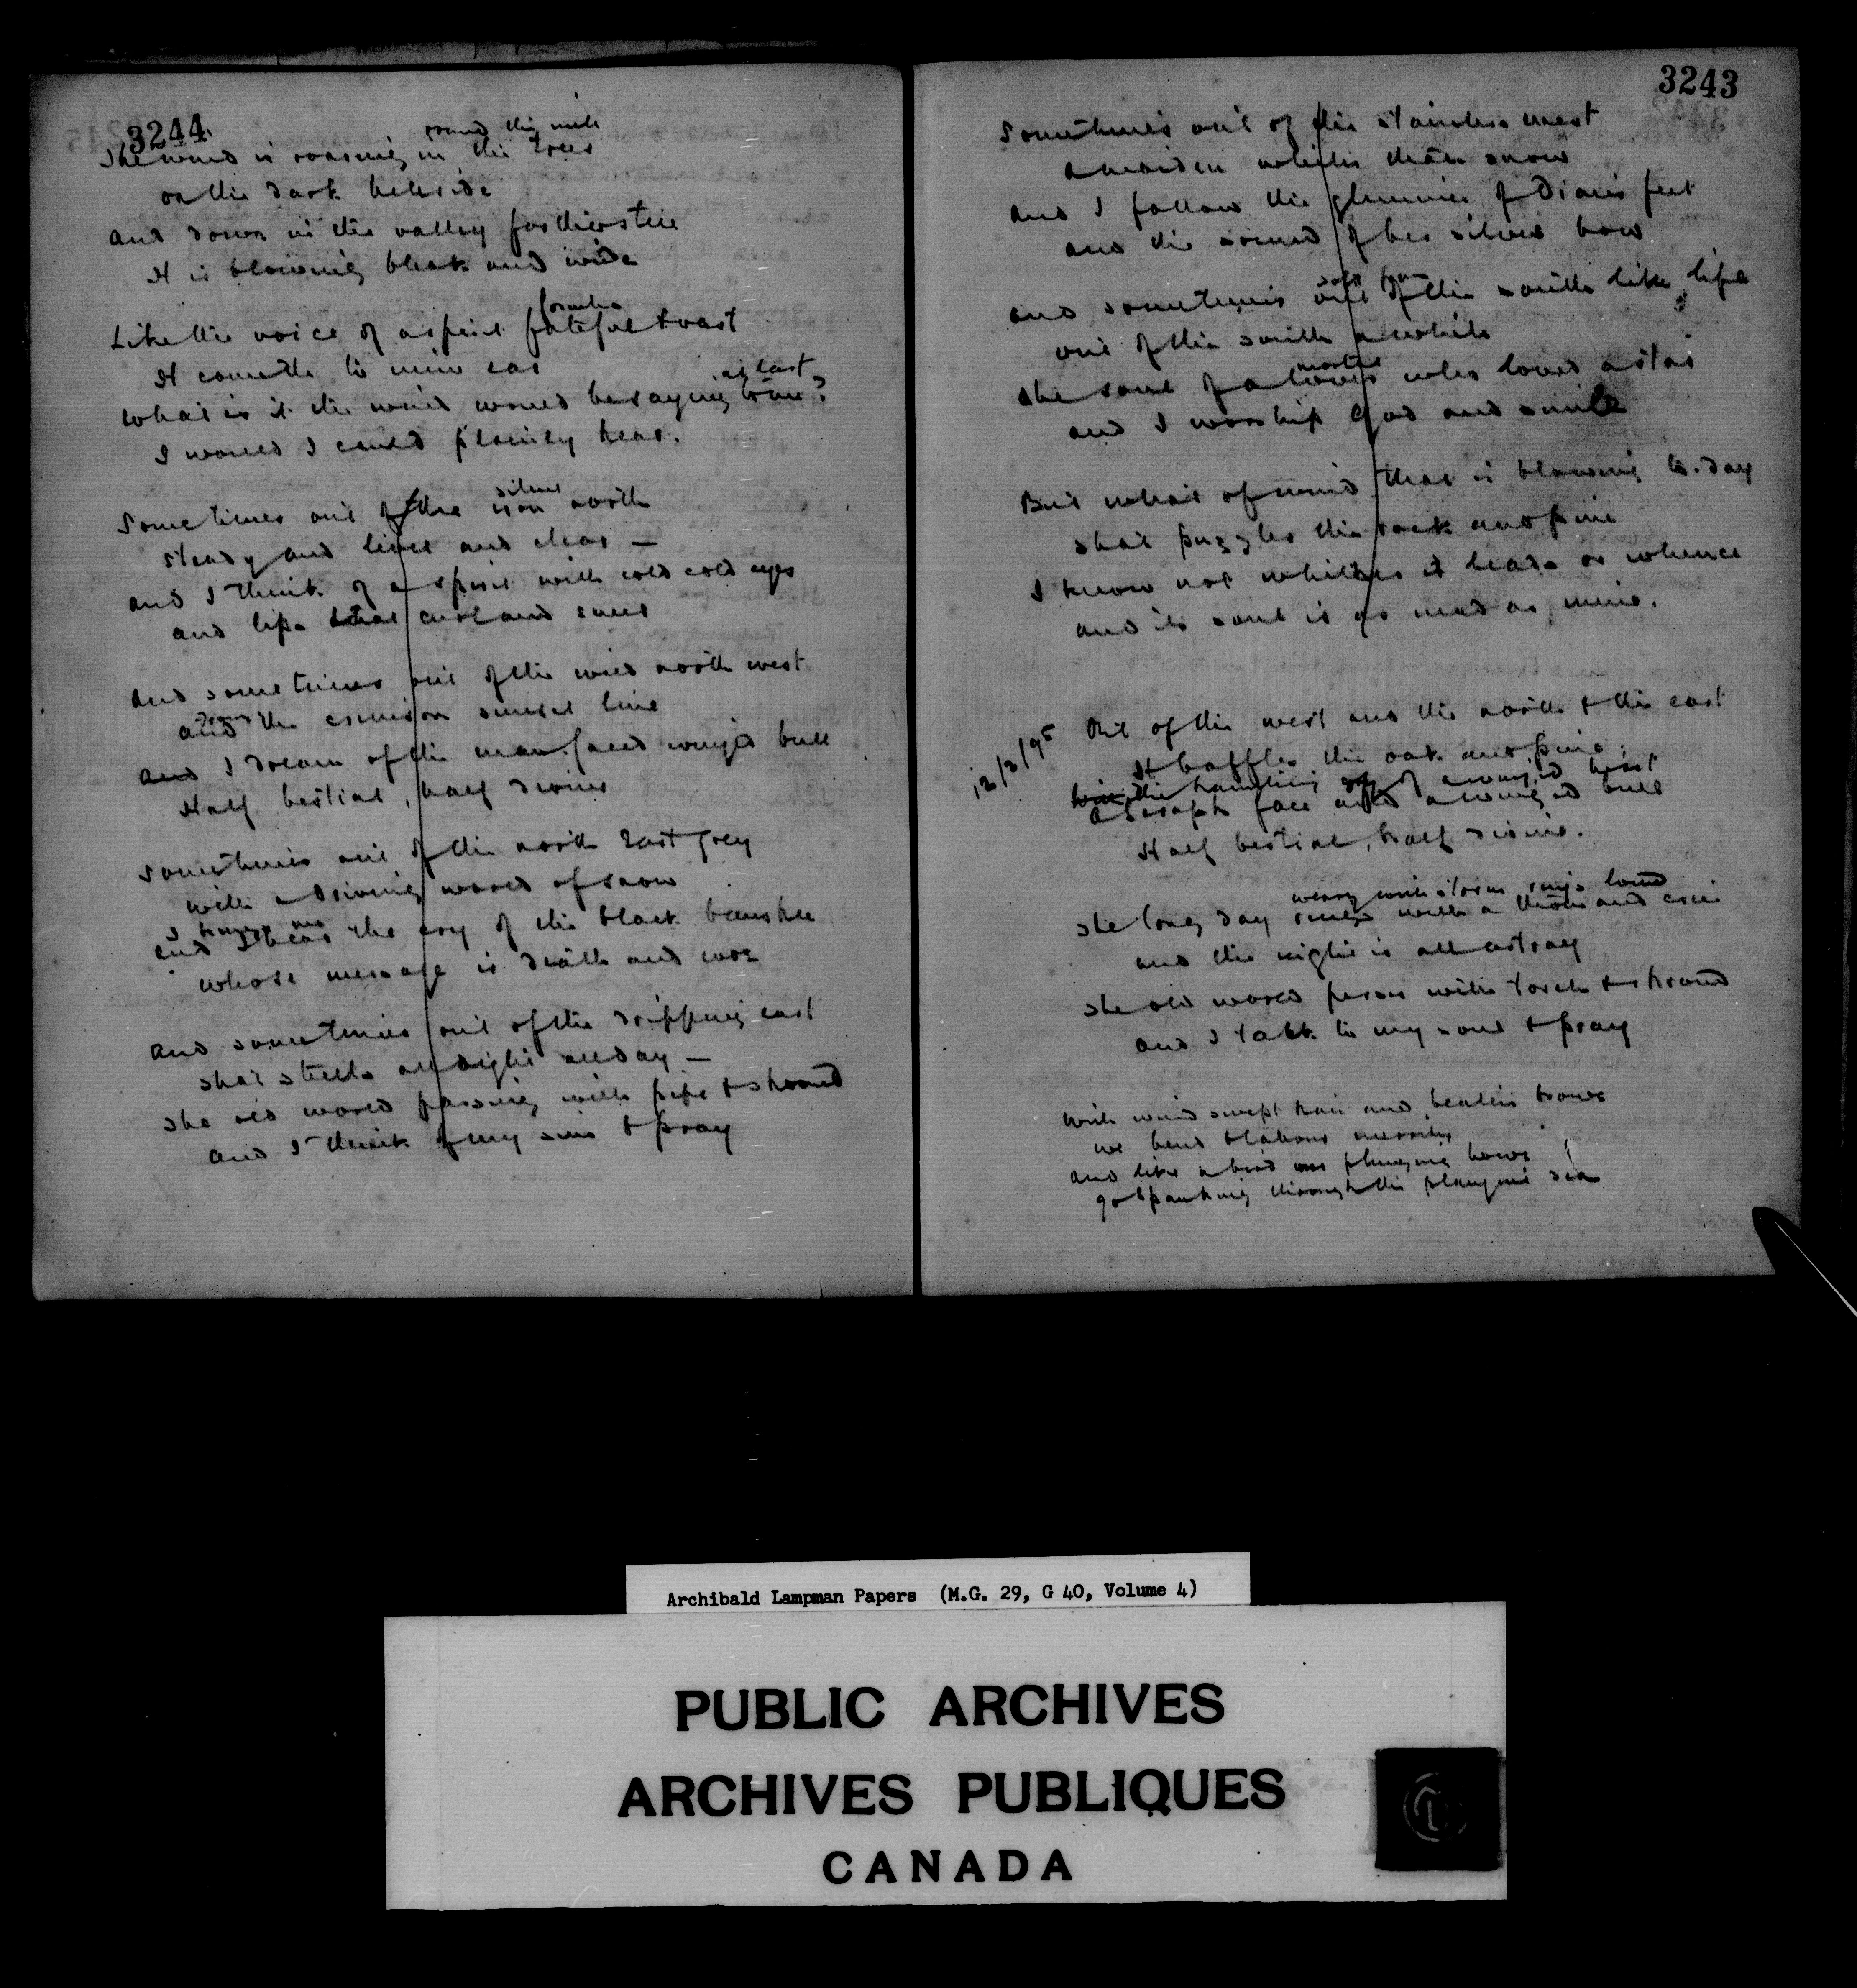 3244
round the mill
The wind is roaring in the trees
on the dark hillside
And down in the valley farther still
It is blowing bleak and wide
sombre
Like the voice of a spirit fateful & vast
It cometh to mine ear
at last
What is it the wind would be saying to me?
I would I could plainly hear.
silent
Sometimes out of the iron north
Steady and and clear —
And I think of a spirit with cold cold eyes
And lips that curl and sneer
And sometimes out of the wild north west
down
And the crimson sunset line
And I dream of the man-faced wingèd bull
Half bestial, half divine
Sometimes out of the north east grey
With a driving world of snow
I
And I hear the cry of the black banshee
Whose message is death and woe
And sometimes out of the dripping east
That steels all night all day —
The old world passing with pipe & shroud
And I think of my sins & pray
3243
Sometimes out of the stainless west
A maiden whiter than snow
And I follow the glimmer of Dian's feet
And the sound of her silver bow
soft from
And sometimes out of the south like life
out of the south a while
mortal
The soul of a lover who loved a star
And I worship God and smile
But what of wind that is blowing to-day
That puzzles the rock and pine
I know not whither it leads or whence
And its soul is as mad as mine.
12/3/95
Out of the west and the north & the east
It baffles the oak and pine;
the of a wingèd beast
A seraph face and a wingèd bull
Half bestial, half divine.
weary with storm rings loud
The long day rings with a thousand cries
And the night is all astray
The old world passes with torch & shroud
And I talk to my soul & pray
With wind swept hair and beaten brows
we bend & labour merrily
And like a bird our plunging bows
go spanking through the plangent sea
Archibald Lampman Papers (M.G. 29, G 40, Volume 4)
PUBLIC ARCHIVES
ARCHIVES PUBLIQUES
CANADA